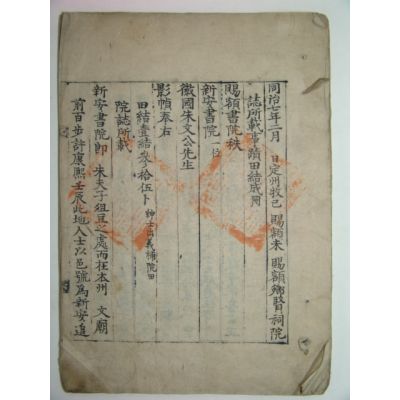 同治七年二月 日定州牧已 賜額未 賜額鄕賢祠院
誌所載事蹟田結成冊
賜額書院秩
新安書院 一位
徽國朱文公先生
影幀奉右
田結壹結參拾伍卜 紳士出義補院田
院誌所載
新安書院卽 朱夫子俎豆之處而在本州 文廟
前百步許康熙壬辰此地人士以邑號爲新安進